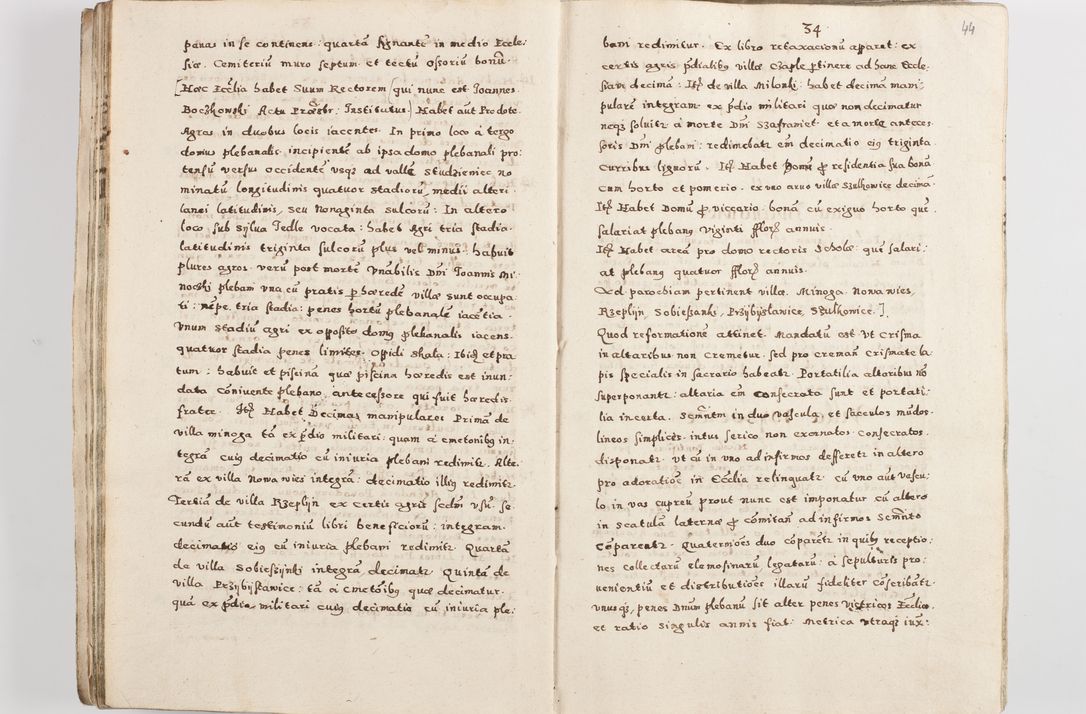 panas in se continens: quartã Agnantẽ in medio Eccle:
siæ. Cemiteriũ muro septum et tectũ Ossoriũ bonũ.
[Hæc Ecclia habet Suum Rectorem (qui nunc est Joannes
Boczkowski Actu Præsbr: Institutus.) Habet aut Pro dote.
Agros in duobus locis iacentes. In primo loco à tergo
domus plebanalis incipientẽ ab ipsa domo plebanali pro:
tensũ versus occidentẽ usqʒ ad vallẽ Studzieniec no
minatũ longitudinis quatuor stadiorũ, medii alteri:
lanei latitudinis, seu Nonaginta sulcorũ: In altero
loco sub sylua Jedle vocata: habet Agri tria stadia
latitudinis triginta sulcorũ plus vel minus: habuit
plures agros. verũ post mortẽ Vnabilis Dñi Joannis Mi:
nocski plebani una cũ pratis p hæredẽ villæ sunt occupa
ti: nẽpe tria stadia: penes hortũ plebanalẽ iacẽtia.
Vnum stadiũ agri ex opposito domus plebanalis iacens.
quatuor stadia penes limites oppidi Skala: Ibidẽ et pra
tum: habuit et piscinã quæ piscina hæredis est inun:
data cõniuente plebano, antecessore qui fuit hæredis
frater. Itẽ Habet Decimas manipulares Primã de
villa minoga tã ex pdio militari: quam à cmetonibus in:
tegrã cuius decimatio cũ iniuria plebani redimitr. Alte:
rã ex villa Nowa wies integrã: decimatio illius redimitr
Tertiã de villa Rzeplijn ex certis agris secdm usũ. Se
cundũ aũt testimoniũ libri beneficiorũ: integram.
decimatio eius cũ iniuria plebani redimitr Quartã
de villa Sobieszijnki integrã decimatr Quintã de
villa Przijbijsławice: tã à cmetõibus quæ decimatur.
quã ex pdio militari cuius decimatio cũ iniuria ple:
34
44
bani redimitur. Ex libro retaxacionũ apparet: ex
certis agris pdialibus villæ Czaple ptinere ad hanc Eccle:
siam decimã: Itẽ de villa Milonki: habet decimã mani:
pularẽ integram ex pdio militari quæ non decimatur
neqʒ soluitr à morte Dñi Szafraniec et a morte anteces:
soris Dñi plebani: redimebatr em decimatio eius triginta
curribus lignorũ. Itẽ Habet Domũ p residentia sua bonã
cum horto et pomerio. ex uno aruo villæ Szelkowice decimã.
Itẽ Habet Domũ p viccario bonã cũ exiguo horto quẽ
salariat plebanus viginti fflor annuis.
Itẽ Habet areã pro domo rectoris Scholæ quẽ salari:
at plebanus quatuor fflor annuis.
Ad parochiam pertinent villæ. Minoga Nowa wies,
Rzeplijn, Sobieszanki, Przijbijsławice, Szulkowice.]
Quod reformationẽ attinet. Mandatũ est ut Crisma
in altaribus non cremetur. sed pro cremañ Crismate la
pis specialis in sacrario habeatr. Portatilia altaribus nõ
superponantr: altaria em Consecrata sunt et portati:
lia incerta. Semñtm in duo vascula, et saculos mũdos
lineos simplices intus serico non exornatos Consecratos
disponatr ut cũ in uno ad infirmos defferetr in altero
pro adoratiõe in Ecclia relinquatr cũ uno aut vascu:
lo in vas cupreũ prout nunc est imponatur cũ altero
in scatulã laternæ p cõmitañ ad infirmos Semñto
cõparentr. Quaterniões duo cõparetr in quibus receptio:
nes collectarũ elemosinarũ legatorũ à sepulturis pro:
uenientiũ et distributiões illarũ fideliter cõscribãtr
unusqʒ, penes Dnum plebanũ sit alter penes Victricos Ecclie.
et ratio singulis annis fiat. Metrica utraqʒ iux: